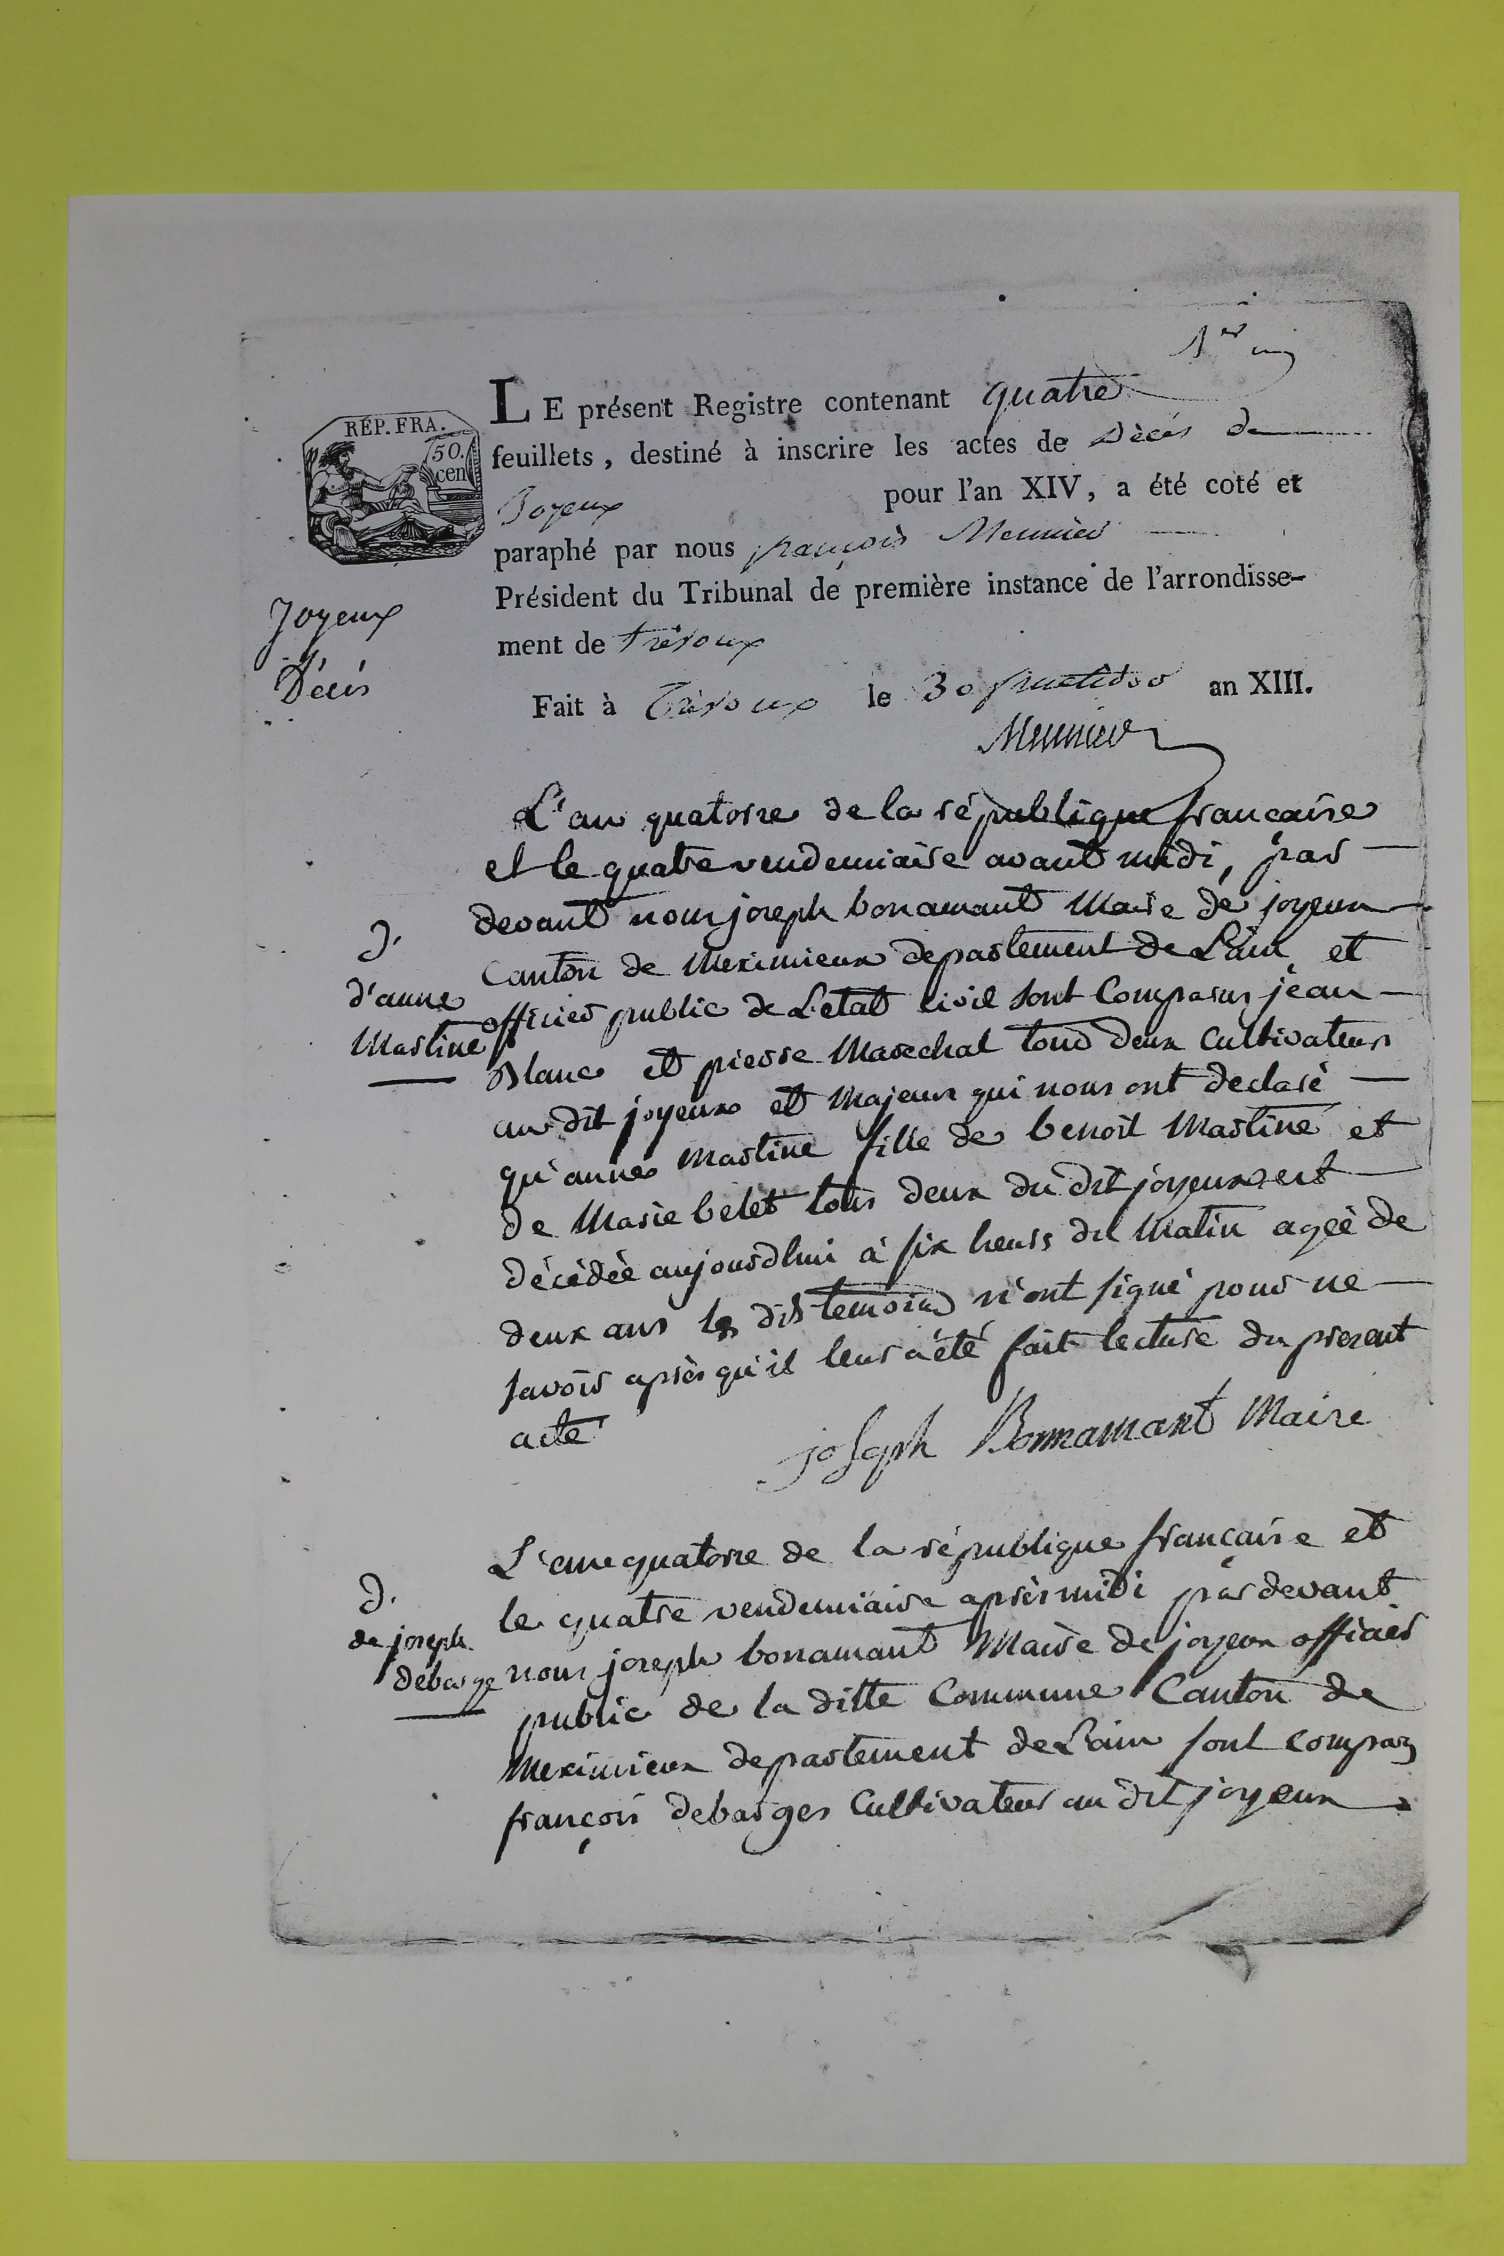 1er
LE présent Registre contenant quatre
feuillets, destiné à inscrire les actes de Décès de
Joyeux pour l'an XIV, a été coté et
paraphé par nous françois Meunier
Président du Tribunal de première instance de l'arrondisse-
ment de trévoux
Fait à Trévoux le 30 fructidor an XIII.
Meunier
RÉP. FRA.
50.
cen
Joyeux
Décès
L'an quatorze de la république française
et le quatre vendemiaire avant midi, par
devant nous joseph bonamant Maire de joyeux
Canton de Meximieux departement de L'ain et
officier public de L'etat civil sont Comparus jean
Blanc et pierre Marechal tous deux Cultivateurs
au dit joyeux et Majeurs qui nous ont declaré
qu'anne Martine fille de benoit Martine et
de Marie belet tous deux du dit joyeux est
décédée aujourdhui à six heurs du Matin agée de
deux ans les dits temoins n'ont signé pour ne
savoir après qu'il leur a été fait lecture du present
acte
joseph Bonnamant Maire
D.
d'anne
Martine
L'an quatorze de la république française et
le quatre vendemiaire après midi par devant
nous joseph bonamant Maire de joyeux officier
public de la ditte Commune Canton de
Meximieux departement de L'ain sont comparu
françois debarges Cultivateur au dit joyeux
D.
de joseph
debarge